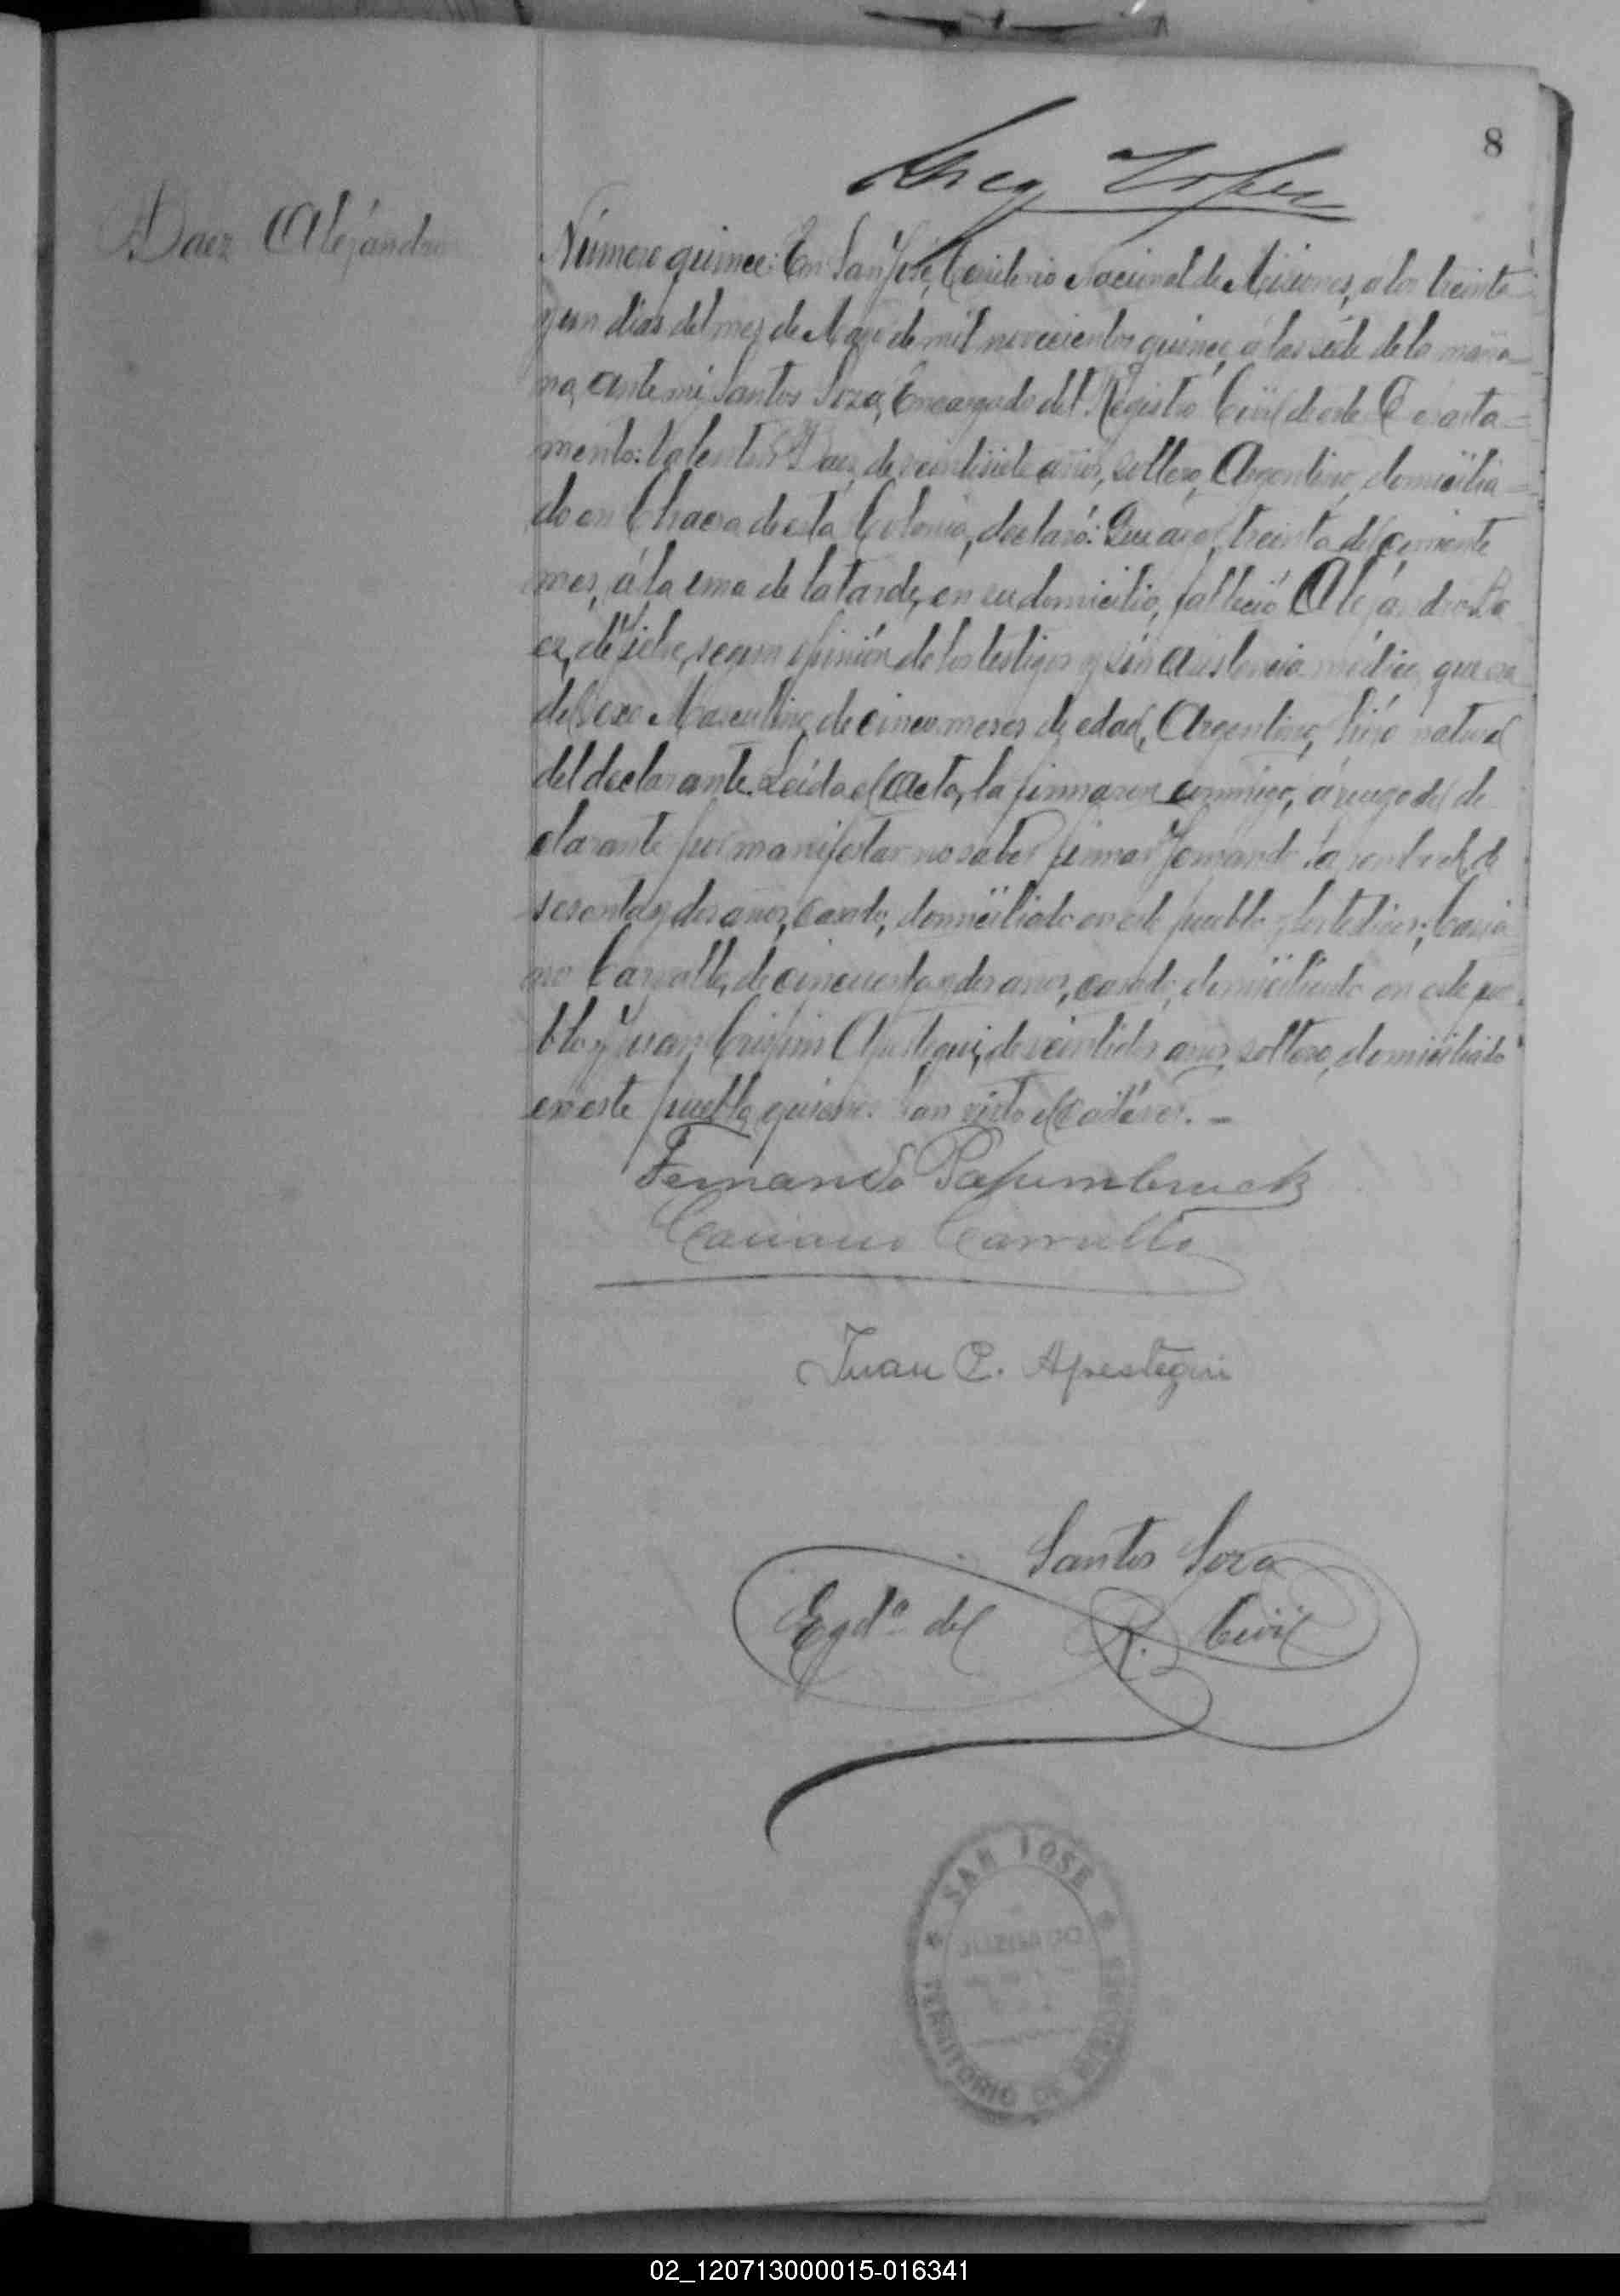 8
Greg Lopez
Baez Alejandro
Número quince: En San José, Territorio Nacional de Misiones, a los treinta
y un dias del mes de Mayo de mil novecientos quince, a las siete de la maña-
na, ante mi, Santos Soza, Encargado del Registro Civil de este Departa-
mento: Baez, de veintisiete años, soltero, Argentino, domicilia-
do en Chacra de esta Colonia, declaró: Que treinta del corriente
mes, á la una de la tarde, en su domicilio, falleció Alejandro Ba
ez, de fiebre, segun opinión de los testigos y sin asistencia médica, que era
del sexo Masculino, de cinco meses de edad, Argentino, hijo natural
del declarante. Leída el acta, la firmaron conmigo, á ruego del de
clarante por manifestar no saber firmar Fernando de
sesenta y dos años, casado, domiciliado en este pueblo y los testigos;
no Carvallo, de cincuenta y dos años, casado, domiciliado en este pue-
blo y Juan Crispin Apestegui, de veintidos años, soltero, domiciliado
en este pueblo, quienes han visto el cadáver. —
Fernando Papembruck
Carvallo
Juan C. Apestegui
Santos Soza
Egdo. del R. Civil
SAN JOSE
JUZGADO
TERRITORIO DE MISIONES
02_120713000015-016341